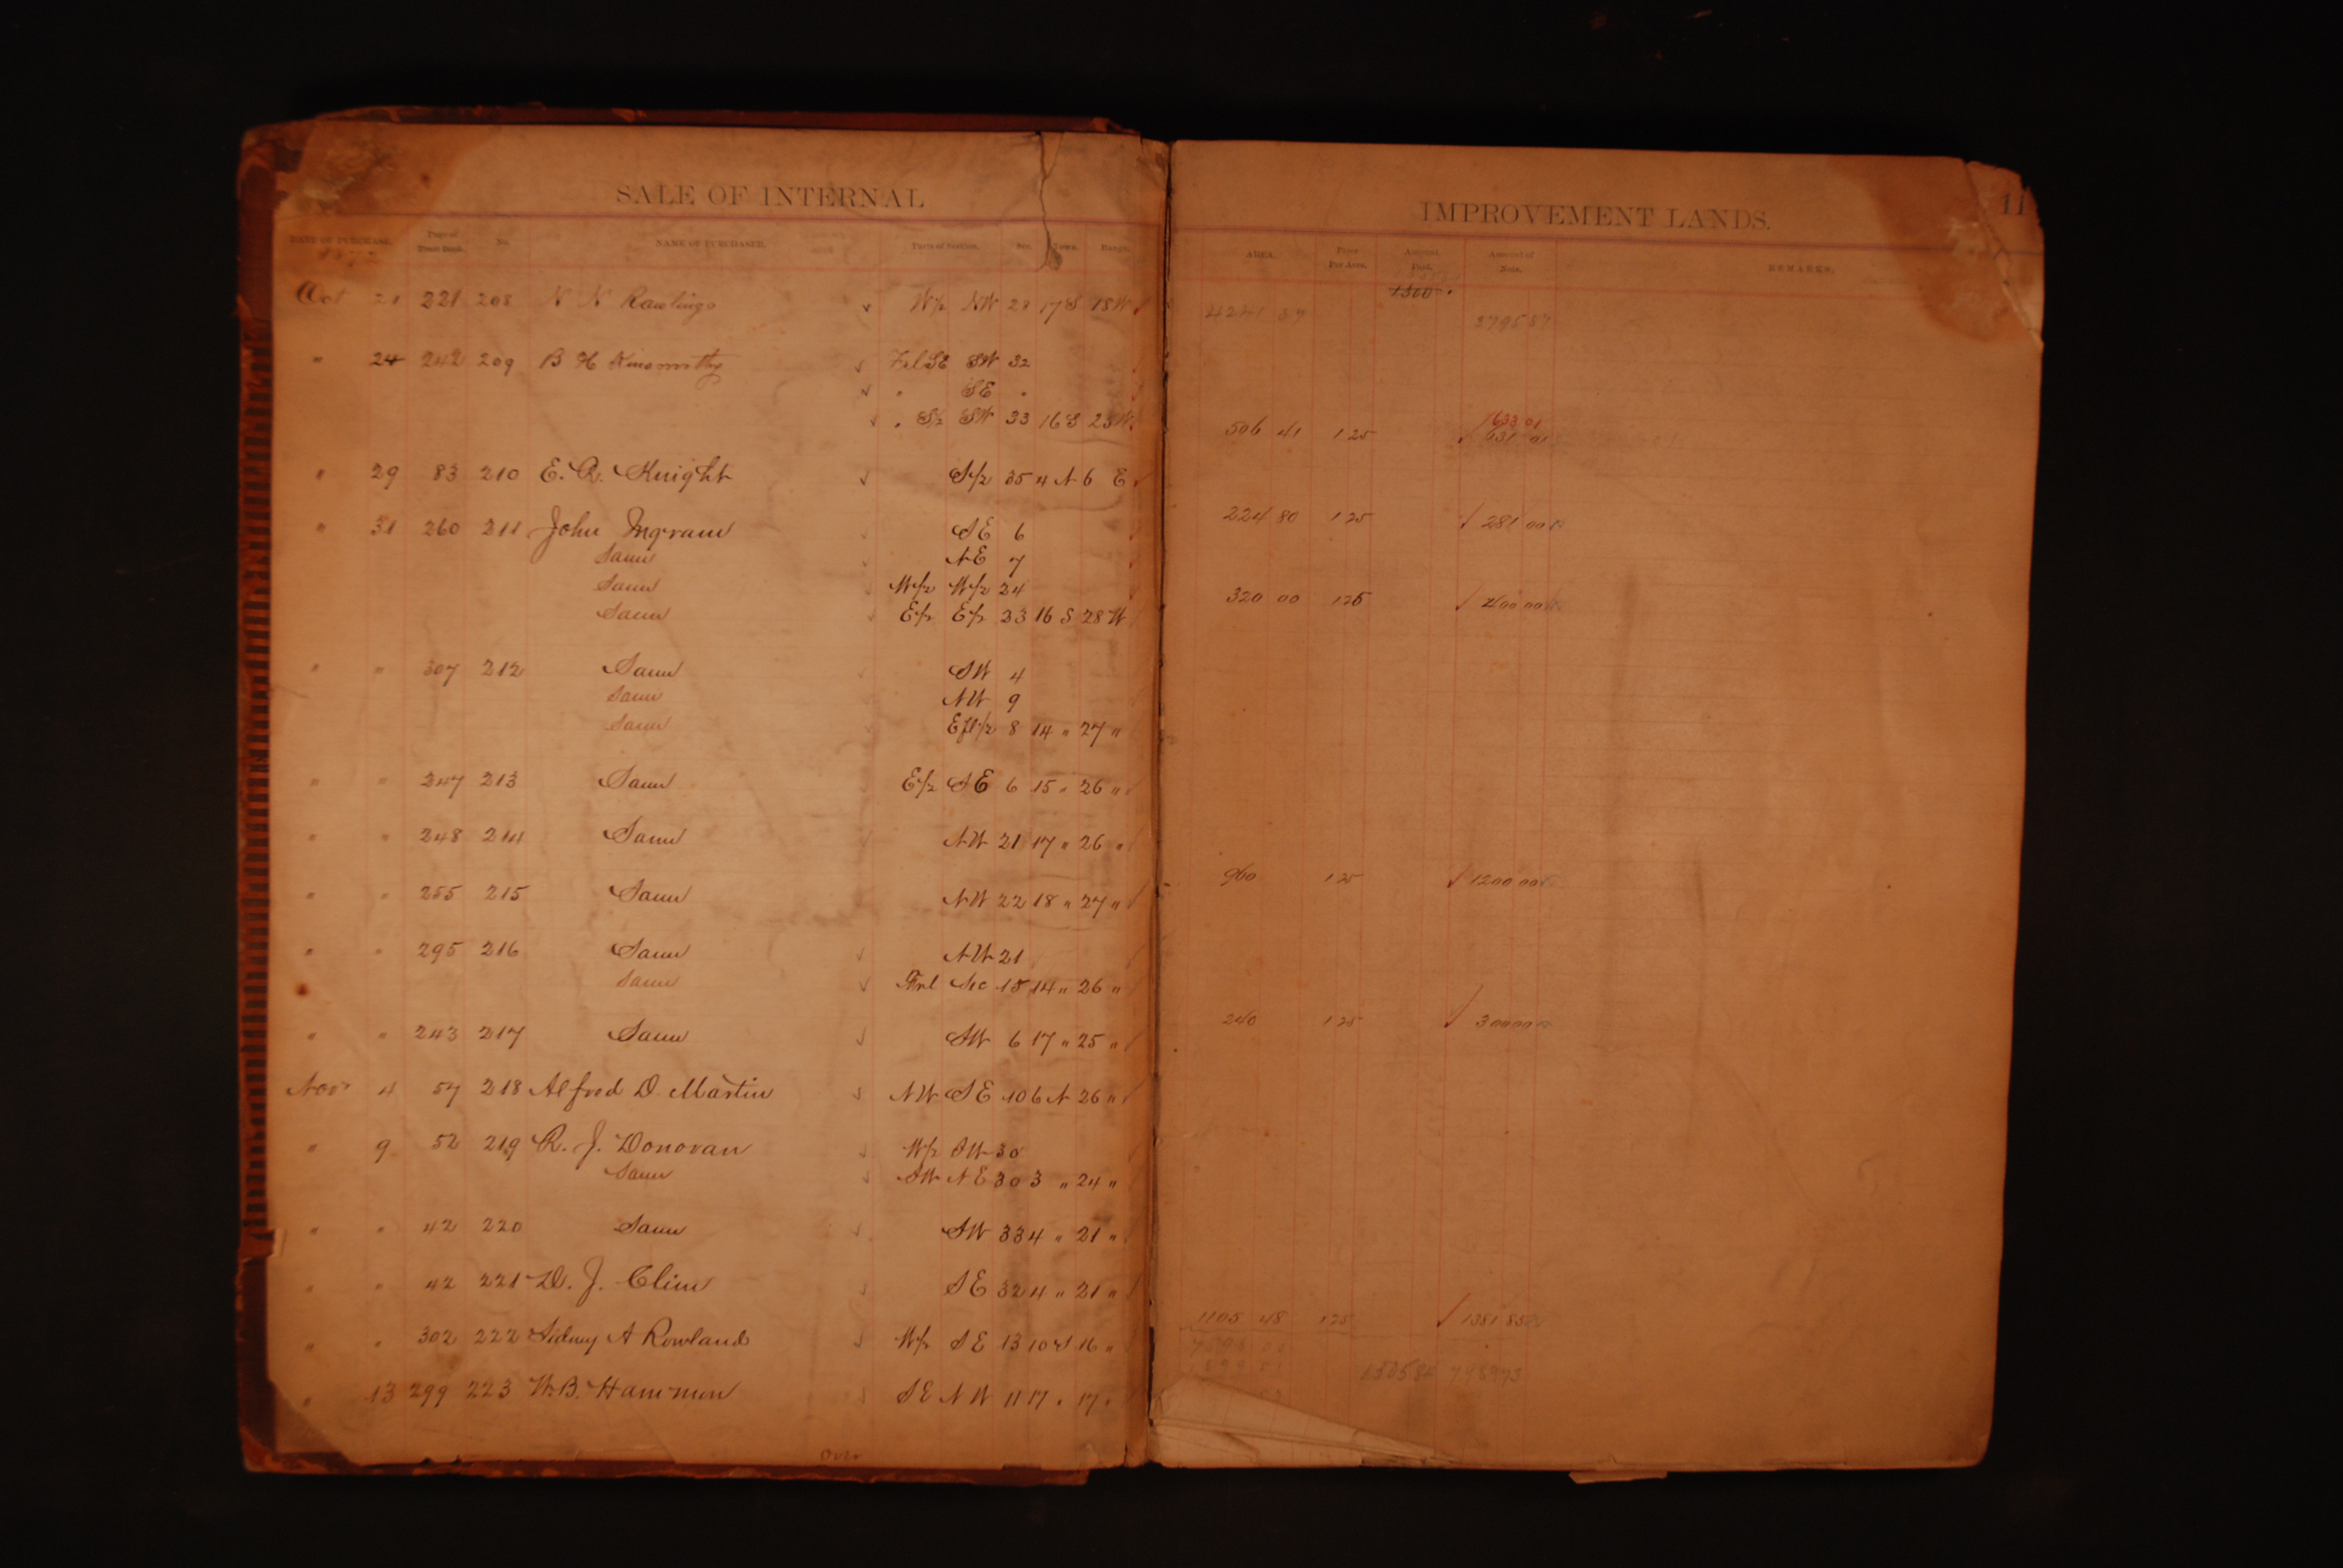 SALE OF INTERNAL
DATE OF PURCHASE. Page of Tract Book. No. NAME OF PURCHASER. Parts of Section. Sec. Town. Range.
Oct 21 221 208 N N Rawlings W/2 NW 28 17 S 18 W
" 24 242 209 B H Kinsworthy Frl SE SW 32
" SE "
" S/2 SW 33 16 S 25 W
" 29 83 210 E. R. Knight S/2 35 4 N 6 E
" 31 260 211 John Ingram SE 6
Same NE 7
Same W/2 W/2 24
Same E/2 E/2 23 16 S 28 W
" " 307 212 Same SW 4
Same NW 9
Same E fl 1/2 8 14 " 27 "
" " 247 213 Same E/2 SE 6 15 " 26 "
" " 248 214 Same NW 21 17 " 26 "
" " 255 215 Same NW 22 18 " 27 "
" " 295 216 Same NW 21
Same Frl Sec 15 14 " 26 "
" " 243 217 Same SW 6 17 " 25 "
Nov 4 57 218 Alfred D. Martin NW SE 10 6 N 26 "
" 9 52 219 R. J. Donovan W/2 SW 30
Same SW NE 30 3 " 24 "
" " 42 220 Same SW 33 4 " 21 "
" " 42 221 D. J. Cline SE 32 4 " 21 "
" " 302 222 Sidney A Rowland W/2 SE 13 10 S 16 "
" 13 299 223 W. B. Hammon SE NW 11 17 " 17 "
Over
IMPROVEMENT LANDS.
11
AREA. Price Per Acre. Amount Paid. Amount of Note. REMARKS.
1500
4241 87 379587
633 01
506 41 1 25 631 01
224 80 1 25 281 00
320 00 125 400 00
960 1 25 1200 00
240 1 25 300 00
1105 48 1 25 1381 85
150584 748973